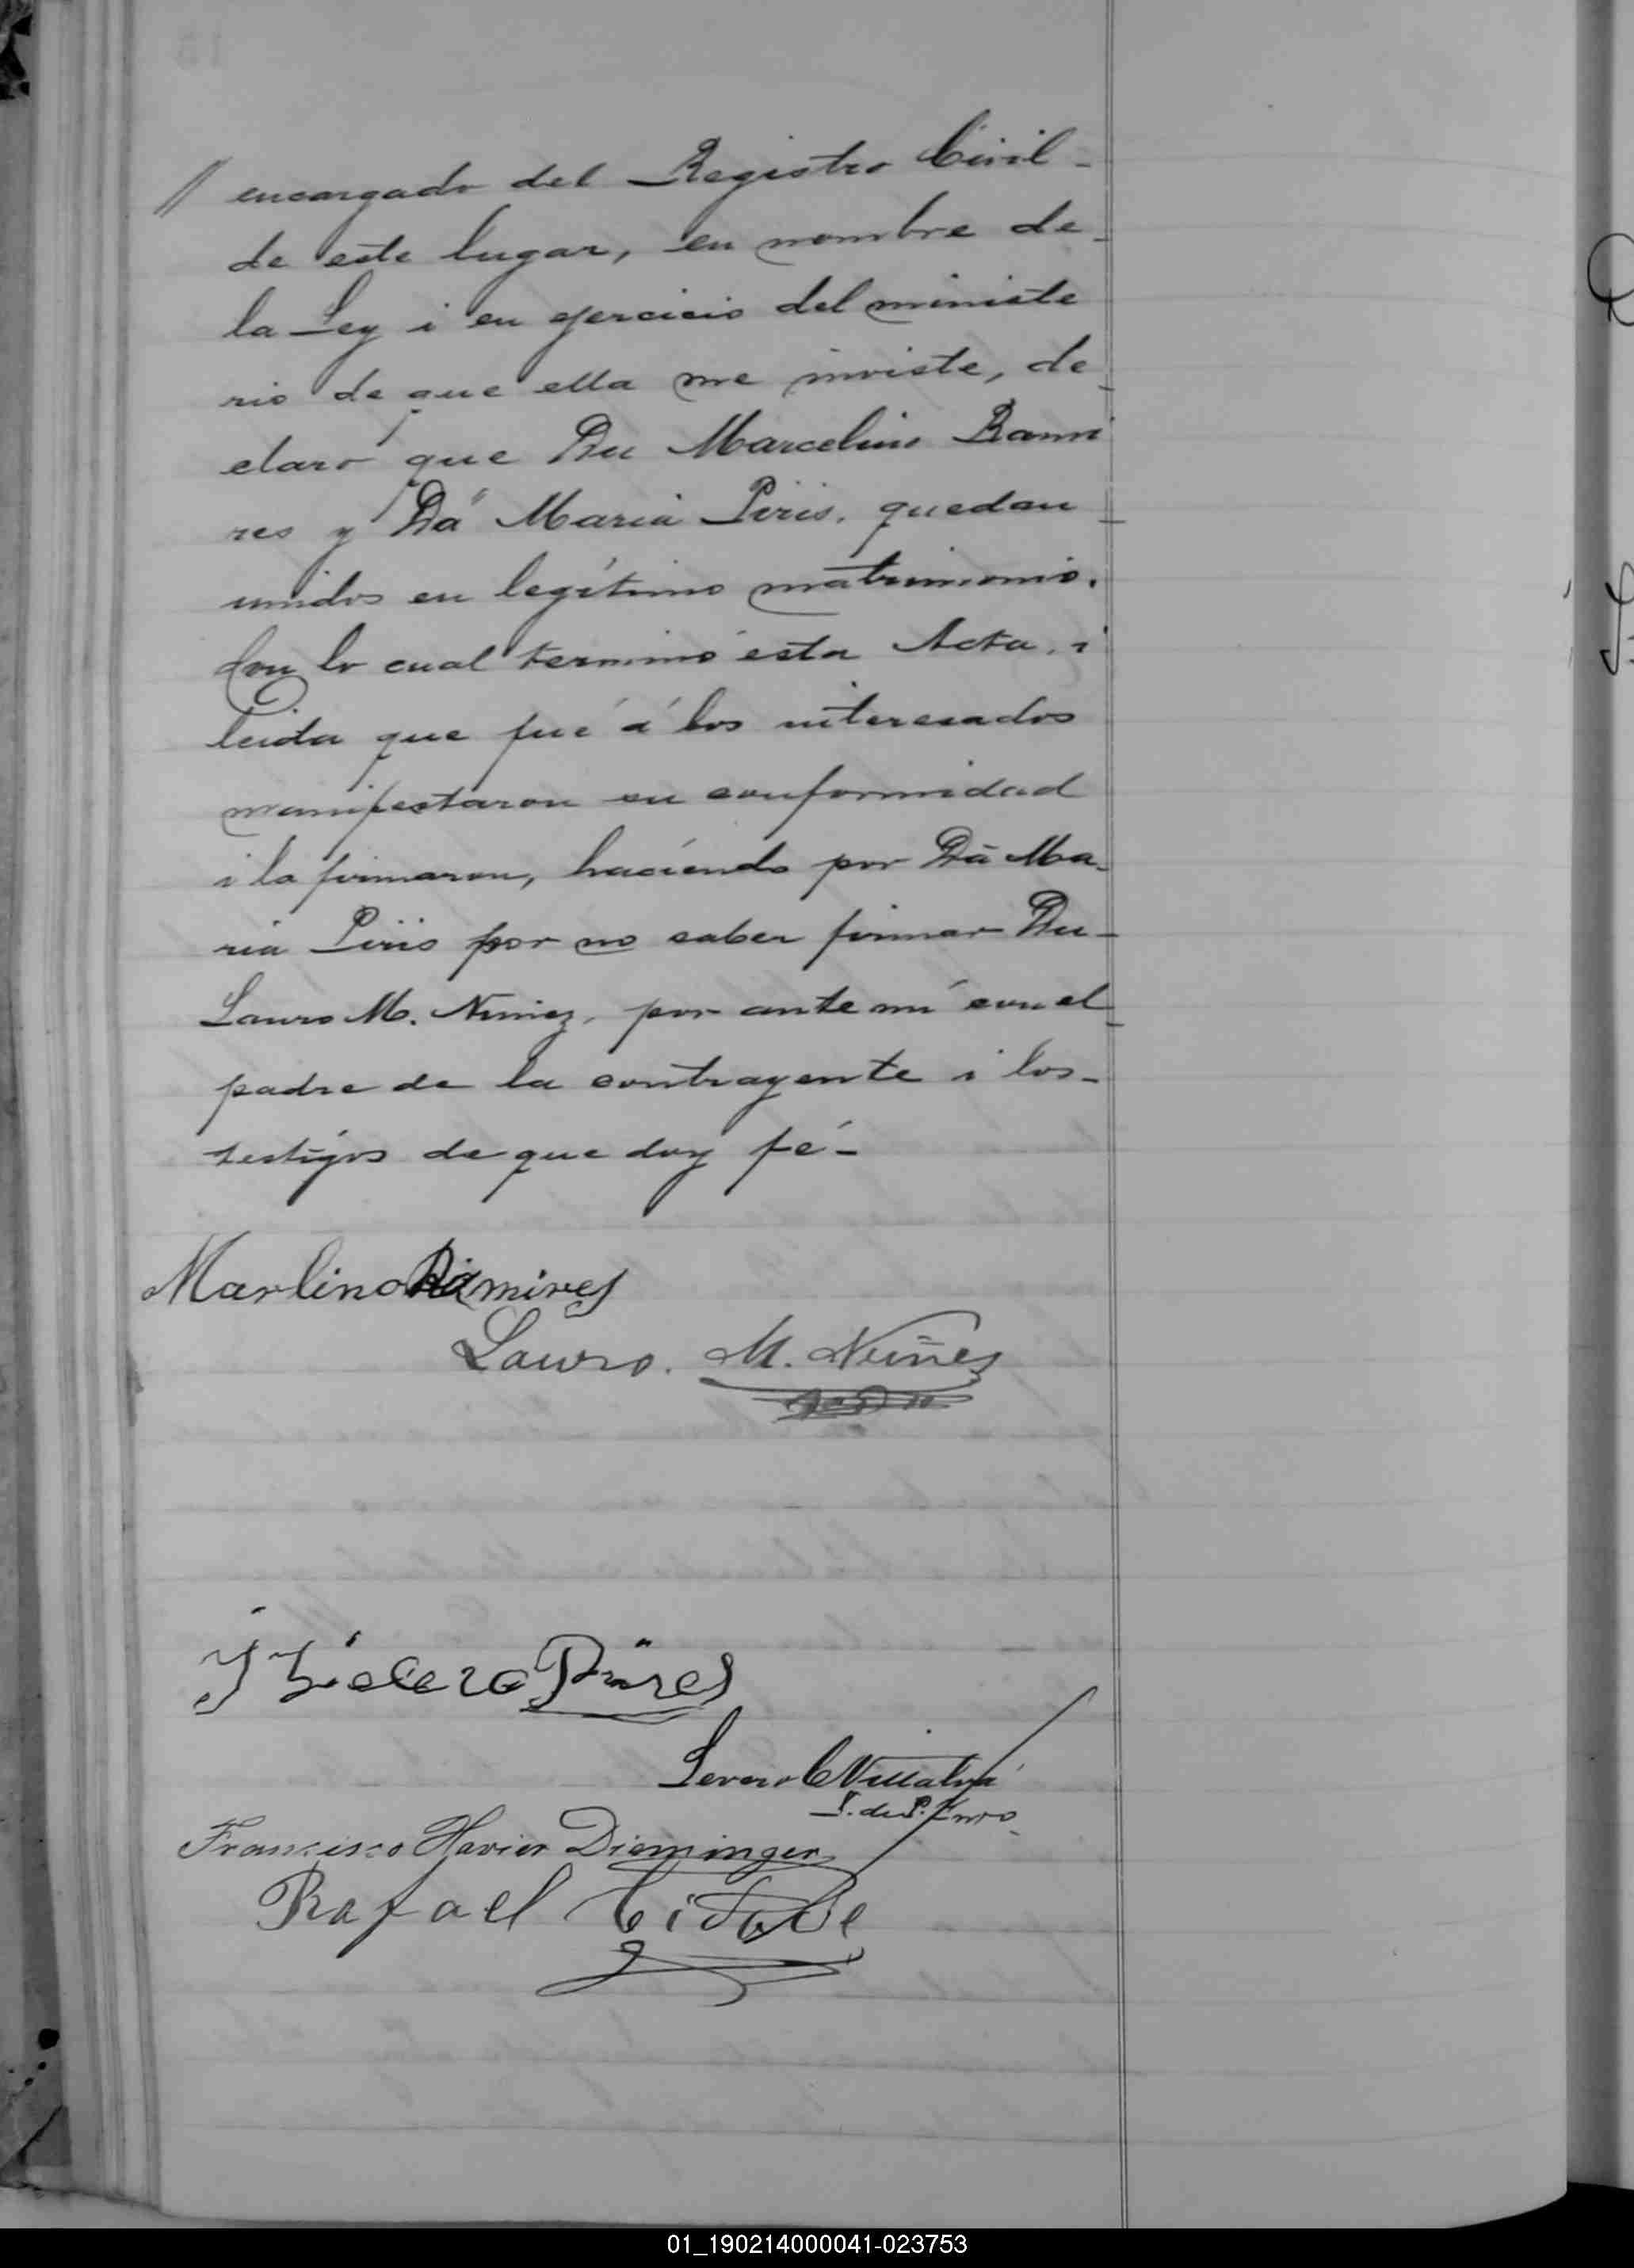 // encargado del Registro Civil -
de este lugar, en nombre de -
la Ley i en ejercicio del ministe
rio de que ella me inviste, de -
claro que Dn Marcelino Rami
res y Dª Maria Piris, quedan -
unidos en legítimo matrimonio.
Con lo cual terminó esta Acta, i
leida que fué á los interesados
manifestaron su conformidad
i la firmaron, haciendo por Dª Ma-
ria Piris por no saber firmar Dn -
Lauro M. Nuñez, por ante mí con el -
padre de la contrayente i los -
testigos de que doy fé -
Marlino Ramires
Lauro. M. Nuñes
Piires
Severo C Villalva
J. de P. Into
Francisco Havier Dieminger
Rafael
01_190214000041-023753